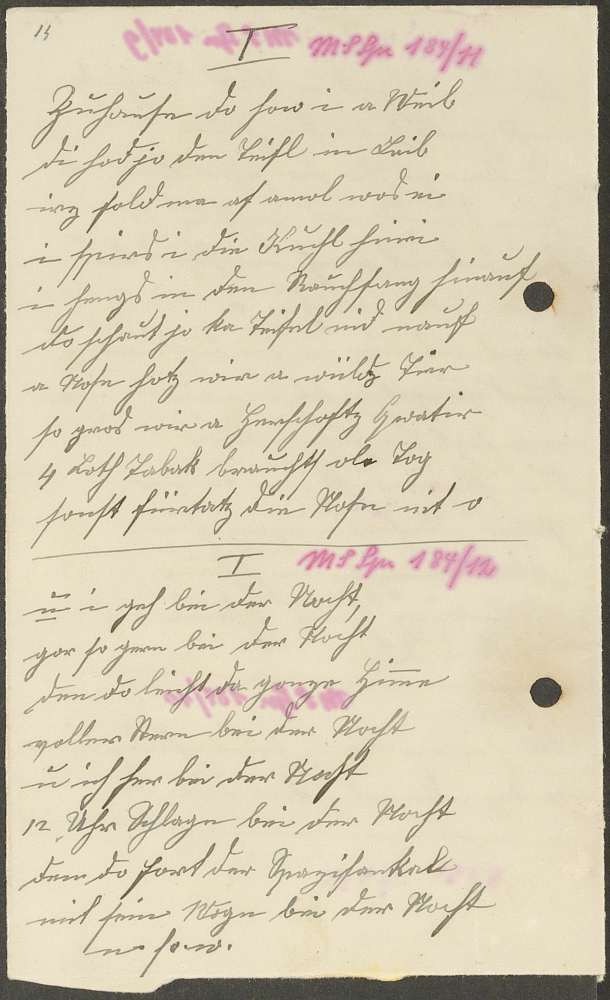 14
I MS Spr 184/11
Zuhause do how i a Weib
di hod jo den Teifl in Leib
irz sold ma af amol wos ei
i spird i die Kuchl hinei
i hengs in den Rauchfang hinauf
do schaut jo ka Teifel nid nauf
a Nosn hotz wir a wildz Tier
so grod wir a Herschoftz
4 Loth Tabak braucht ole Tog
sonst die Nosn nit o
I MS Spr 184/12
u i geh bei der Nocht,
gor so gern bei der Nocht
den do leicht da gonze Himme
voller Stern bei der Nocht
u ich her bei der Nocht
12 Uhr Schlagn bei der Nocht
den do fort der
mit sein Wogn bei der Nocht
u. s. w.